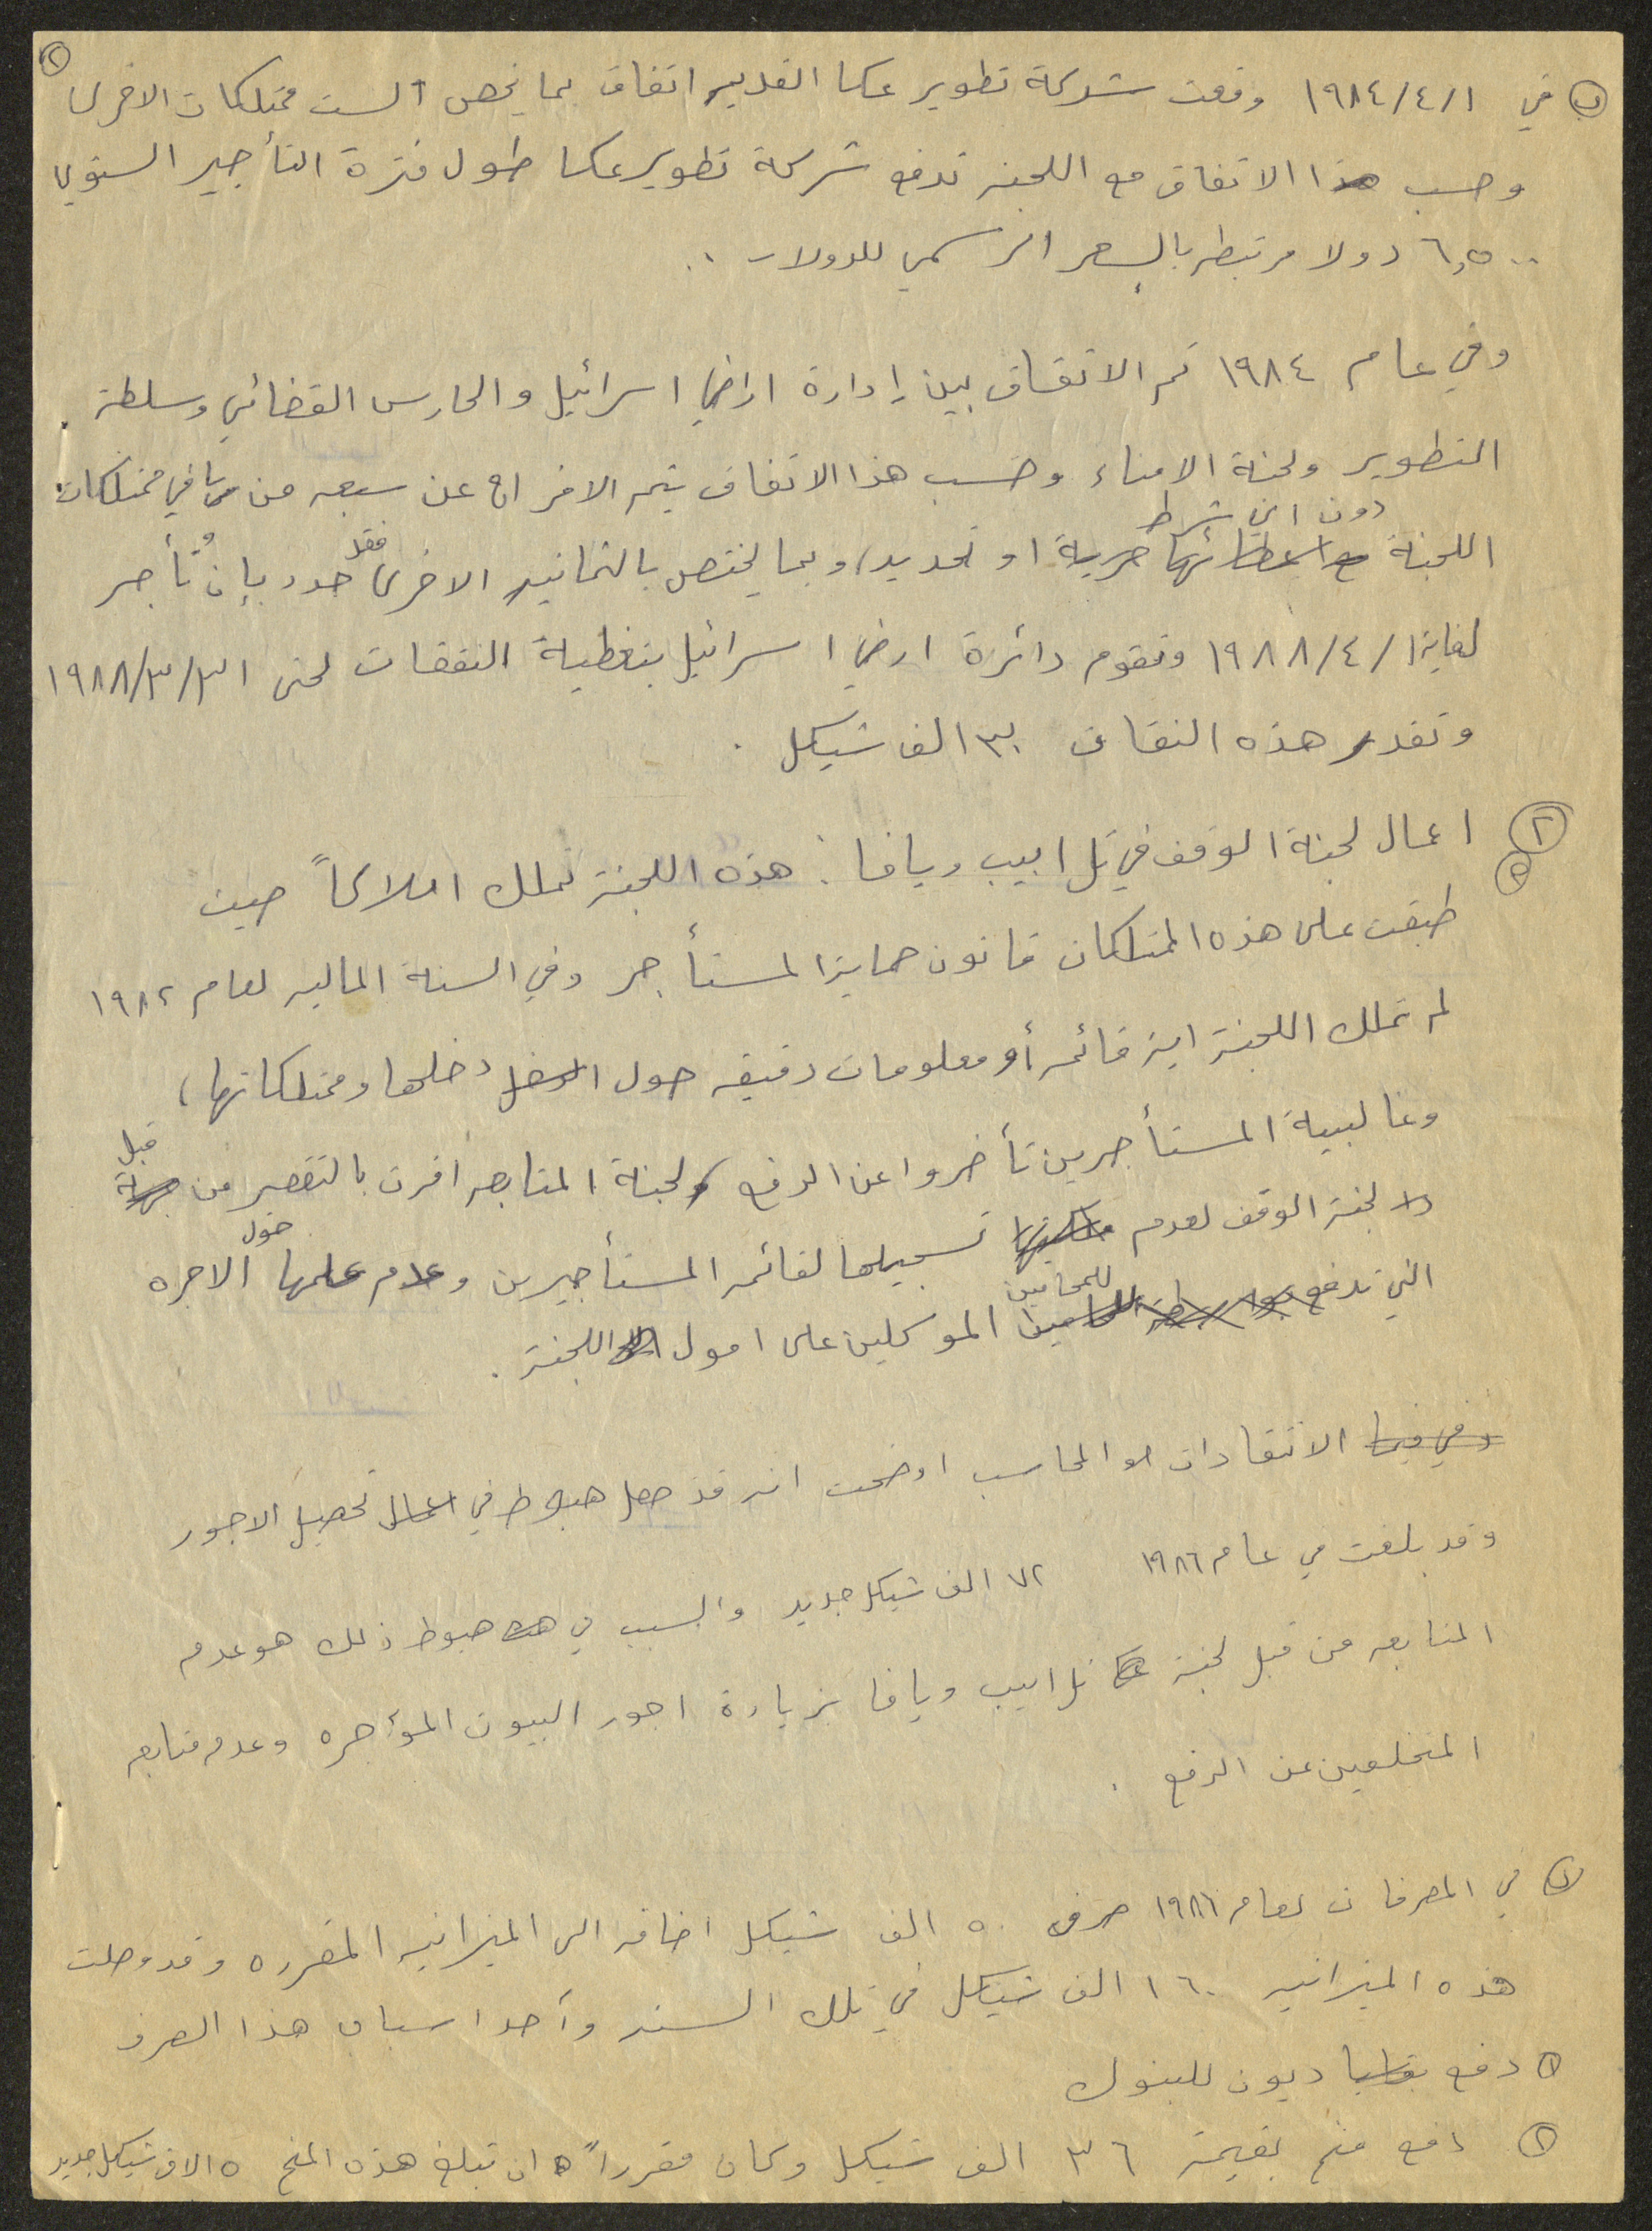 ٢
ب في ١٩٨٤/٤/١ وقعت شركة تطوير عكا القديمه اتفاق بما يخص الست ممتلكات الاخرى
وحسب هذا الاتفاق مع اللجنه تدفع شركة تطوير عكا طول فترة التأجير السنوي
٦,٥٠٠ دولا مرتبطه بالسعر الرسمي للدولار ..
وفي عام ١٩٨٤ تم الاتفاق بين إدارة اراضي اسرائيل والحارس القضائي وسلطة
التطوير ولجنة الامناء وحسب هذا الاتفاق يتم الافراج عن سبعه من باقي ممتلكات
دون اي شرط
اللجنة مع اعطائها حرية او تحديد، وبما يختص بالثمانيه الاخرى فقد حدد بإن تُأجر
لغاية ١٩٨٨/٤/١ وتقوم دائرة اراضي اسرائيل بتغطية النفقات لحتى ١٩٨٨/٣/٣١
وتقدر هذه النفقات ٣٠ الف شيكل .
٢ اعمال لجنة الوقف في تل ابيب ويافا : هذه اللجنة تملك املاكاً حيث
طبقت على هذه الممتلكات قانون حماية المستأجر وفي السنة الماليه لعام ١٩٨٢
لم تملك اللجنة اية قائمه أو معلومات دقيقه حول الدخل دخلها وممتلكاتها ،
وغالبية المستأجرين تأخروا عن الدفع ولجنة المتابعه اقرت بالتقصير من جهة قبل
لجنة الوقف لعدم تسجيلها لقائمه المستأجيرين وعدم علمها حول الاجره
التي تدفع بواسطة للمحامين الموكلين على امول اللجنة .
وفي الانتقادات المحاسب اوضحت انه قد حصل هبوط في اعمال تحصيل الاجور
وقد بلغت في عام ١٩٨٦ ٧٢ الف شيكل جديد والسبب في هبوط ذلك هو عدم
المتابعه من قبل لجنة تل ابيب ويافا بزيادة اجور البيوت المؤاجره وعدم متابعه
المتخلفين عن الدفع .
في المصرفات لعام ١٩٨٦ صرف ٥٠ الف شيكل اضافه الى الميزانيه المقرره وقد وصلت
هذه الميزانيه ١٦٠ الف شيكل في تلك السنه وأحد اسباب هذا الصرف
١ دفع بقايا ديون للبنوك
٢ دفع منح بقيمة ٣٦ الف شيكل وكان مقرراً ان تبلغ هذه المنح ٥ الاف شيكل جديد